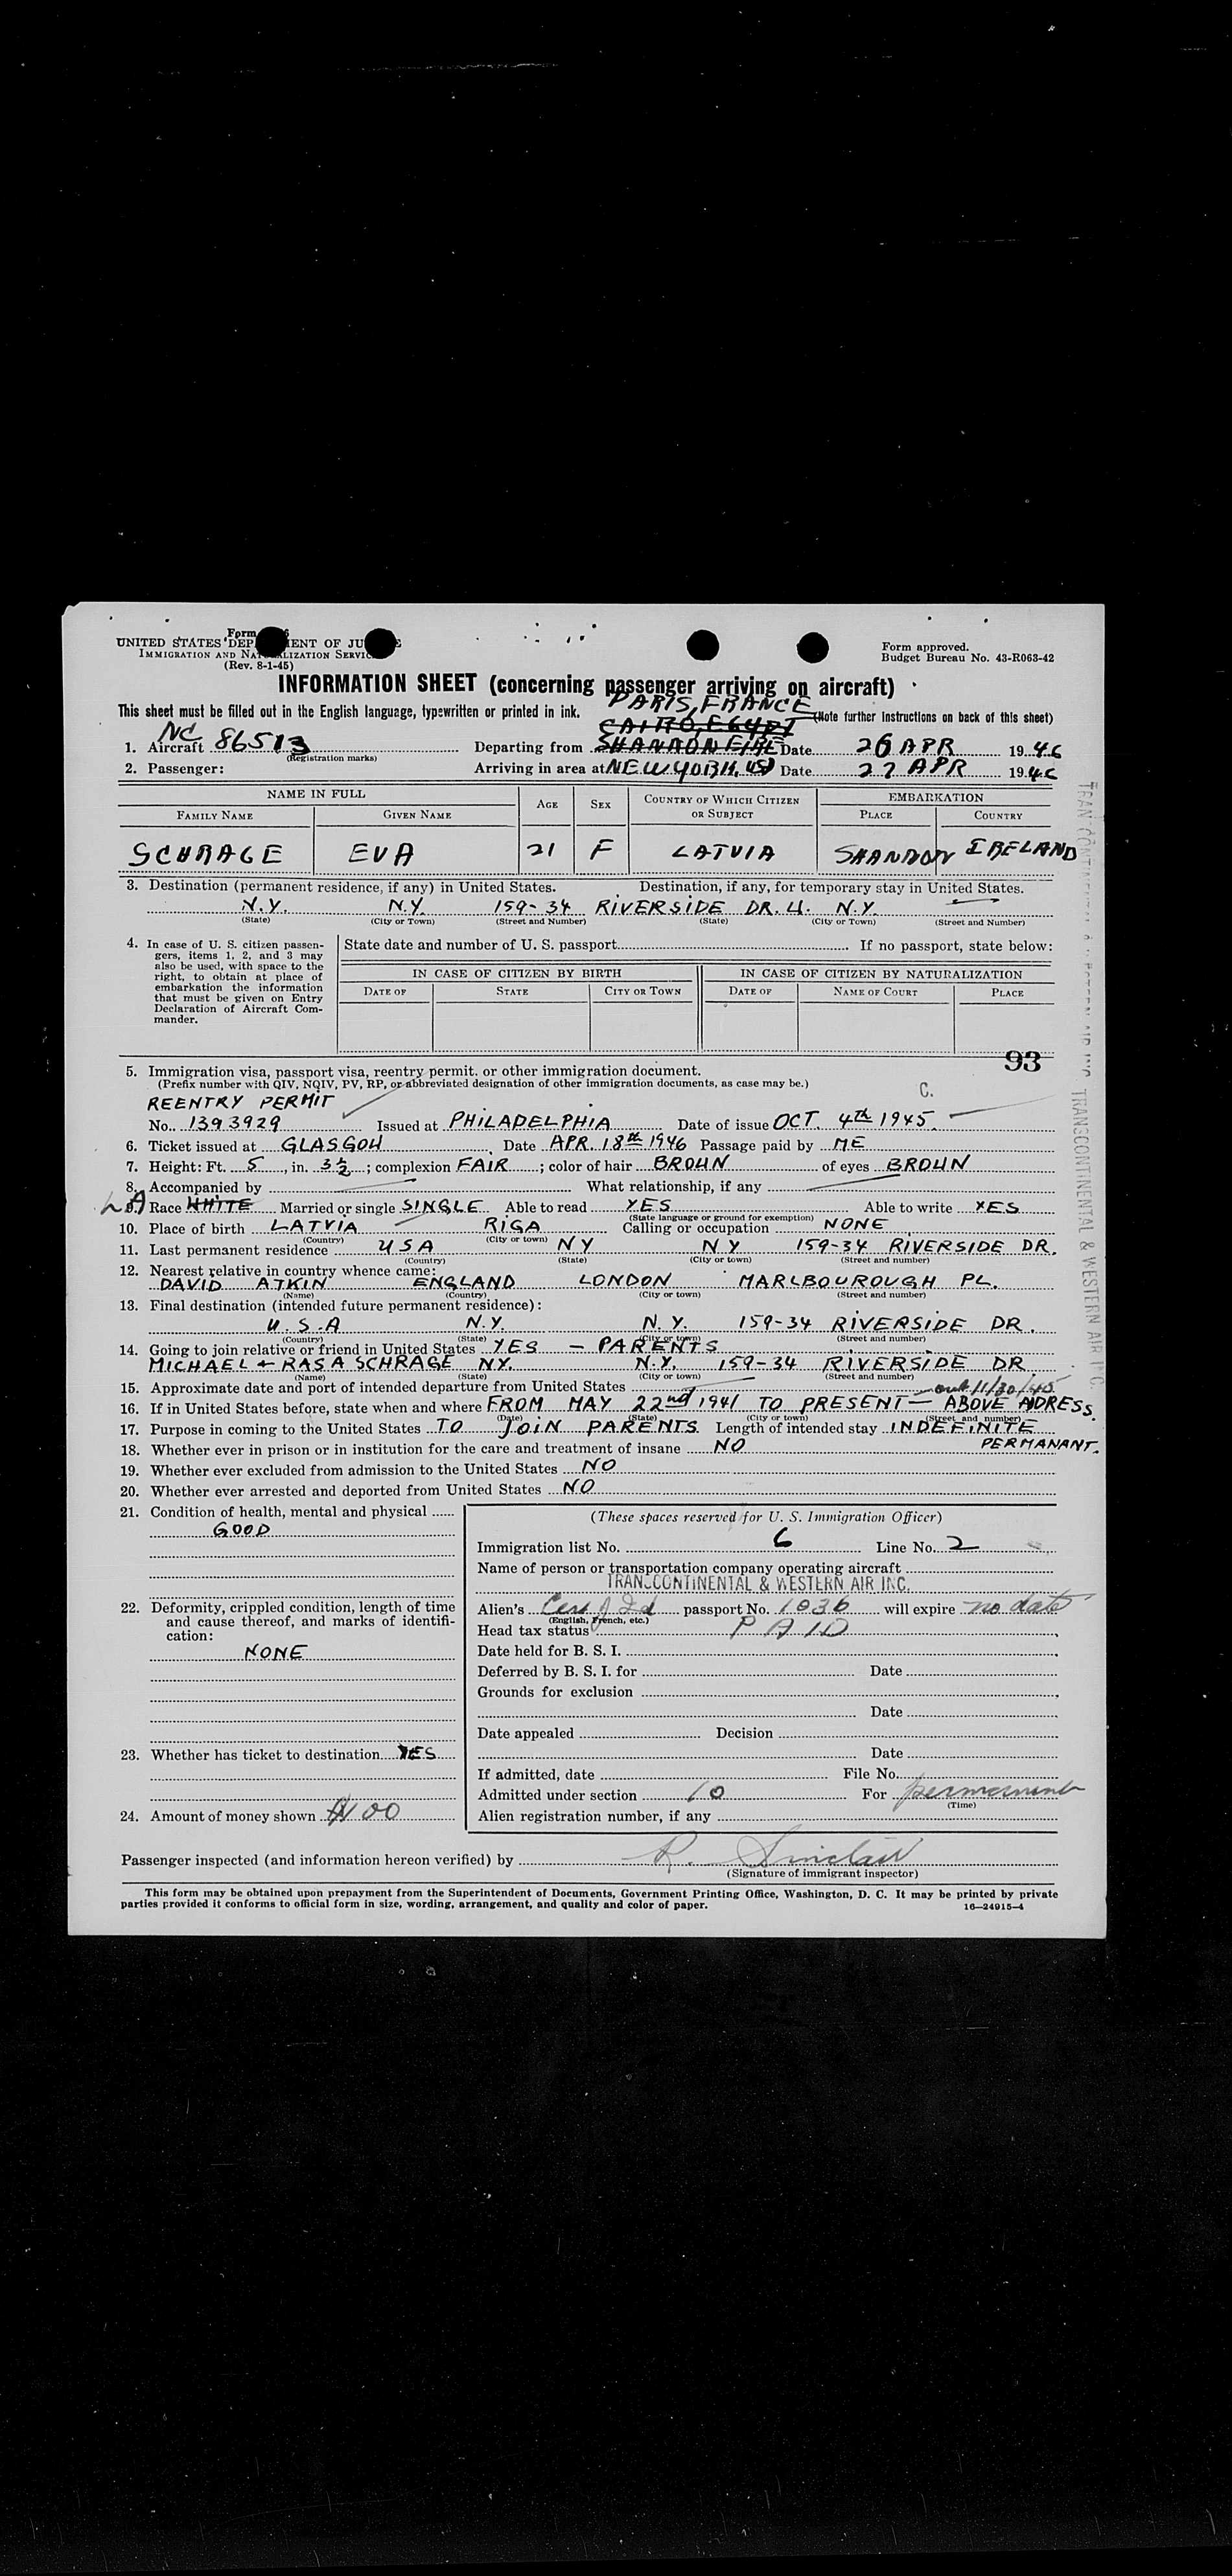 Form
UNITED STATES DEP ENT OF JU E
IMMIGRATION AND NAT LIZATION SERVIC
(Rev. 8-1-45)
Form approved.
Budget Bureau No. 43-R063-42
INFORMATION SHEET (concerning passenger arriving on aircraft)
PARIS, FRANCE
This sheet must be filled out in the English language, typewritten or printed in ink. CAIRO, EGYPT (Note further instructions on back of this sheet)
1. Aircraft NC 86513 Departing from SHANNON EIRE Date 26 APR 1946
(Registration marks)
2. Passenger: Arriving in area at NEW YORK, US Date 27 APR 1946
NAME IN FULL AGE SEX COUNTRY OF WHICH CITIZEN OR SUBJECT EMBARKATION
FAMILY NAME GIVEN NAME PLACE COUNTRY
SCHRAGE EVA 21 F LATVIA SHANNON IRELAND
3. Destination (permanent residence, if any) in United States. Destination, if any, for temporary stay in United States.
N.Y. N.Y. 159-34 RIVERSIDE DR. W. N.Y.
(State) (City or Town) (Street and Number) (State) (City or Town) (Street and Number)
4. In case of U. S. citizen passen-
gers, items 1, 2, and 3 may
also be used, with space to the
right, to obtain at place of
embarkation the information
that must be given on Entry
Declaration of Aircraft Com-
mander.
State date and number of U. S. passport If no passport, state below:
IN CASE OF CITIZEN BY BIRTH IN CASE OF CITIZEN BY NATURALIZATION
DATE OF STATE CITY OR TOWN DATE OF NAME OF COURT PLACE
93
5. Immigration visa, passport visa, reentry permit, or other immigration document.
(Prefix number with QIV, NQIV, PV, RP, or abbreviated designation of other immigration documents, as case may be.)
C.
REENTRY PERMIT
No. 1393929 Issued at PHILADELPHIA Date of issue OCT. 4th 1945.
6. Ticket issued at GLASGOW Date APR. 18th 1946 Passage paid by ME
7. Height: Ft. 5, in. 3½; complexion FAIR; color of hair BROWN of eyes BROWN
8. Accompanied by What relationship, if any
9. Race WHITE Married or single SINGLE Able to read YES Able to write YES
(State language or ground for exemption)
10. Place of birth LATVIA RIGA Calling or occupation NONE
(Country) (City or town)
11. Last permanent residence USA NY NY 159-34 RIVERSIDE DR.
(Country) (State) (City or town) (Street and number)
12. Nearest relative in country whence came:
DAVID ATKIN ENGLAND LONDON MARLBOUROUGH PL.
(Name) (Country) (City or town) (Street and number)
13. Final destination (intended future permanent residence):
U.S.A N.Y. N.Y. 159-34 RIVERSIDE DR.
(Country) (State) (City or town) (Street and number)
14. Going to join relative or friend in United States YES - PARENTS
MICHAEL + RASA SCHRAGE NY. N.Y. 159-34 RIVERSIDE DR
(Name) (State) (City or town) (Street and number)
15. Approximate date and port of intended departure from United States out 11/30/45
16. If in United States before, state when and where FROM MAY 22nd 1941 TO PRESENT - ABOVE ADRESS.
(Date) (State) (City or town) (Street and number)
17. Purpose in coming to the United States TO JOIN PARENTS Length of intended stay INDEFINITE
PERMANANT.
18. Whether ever in prison or in institution for the care and treatment of insane NO
19. Whether ever excluded from admission to the United States NO
20. Whether ever arrested and deported from United States NO
21. Condition of health, mental and physical
GOOD
22. Deformity, crippled condition, length of time
and cause thereof, and marks of identifi-
cation:
NONE
23. Whether has ticket to destination YES
24. Amount of money shown $100
(These spaces reserved for U. S. Immigration Officer)
Immigration list No. 6 Line No. 2
Name of person or transportation company operating aircraft
TRANSCONTINENTAL & WESTERN AIR INC.
Alien's Cert of Id passport No. 1036 will expire no date
(English, French, etc.)
Head tax status PAID
Date held for B. S. I.
Deferred by B. S. I. for Date
Grounds for exclusion
Date
Date appealed Decision
Date
If admitted, date File No.
Admitted under section 10 For permanent
(Time)
Alien registration number, if any
Passenger inspected (and information hereon verified) by R. Sinclair
(Signature of immigrant inspector)
This form may be obtained upon prepayment from the Superintendent of Documents, Government Printing Office, Washington, D. C. It may be printed by private
parties provided it conforms to official form in size, wording, arrangement, and quality and color of paper. 16—24915-4
TRANSCONTINENTAL & WESTERN AIR INC